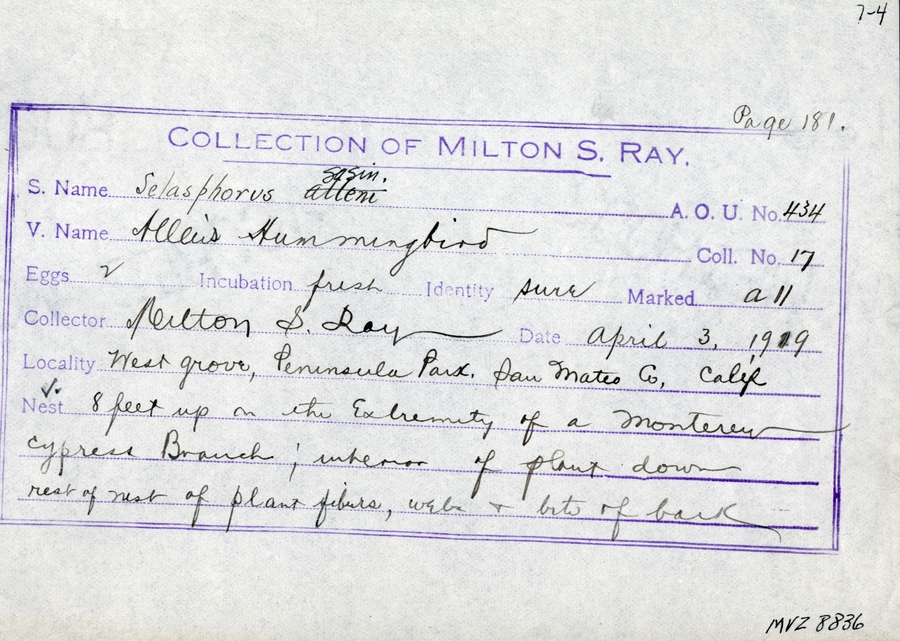 7-4
Page 181.
COLLECTION OF MILTON S. RAY.
sasin.
S. Name Selasphorus alleni A. O. U. No. 434
V. Name Allen's Hummingbird Coll. No. 17
Eggs 2 Incubation fresh Identity sure Marked all
Collector Milton S. Ray Date April 3, 1919
Locality West grove, Peninsula Park. San Mateo Co, Calif
Nest 8 feet up on the Extremity of a Monterey
cypress Branch; interior of plant down
rest of nest of plant fibers, webs + bits of bark
MVZ 8836